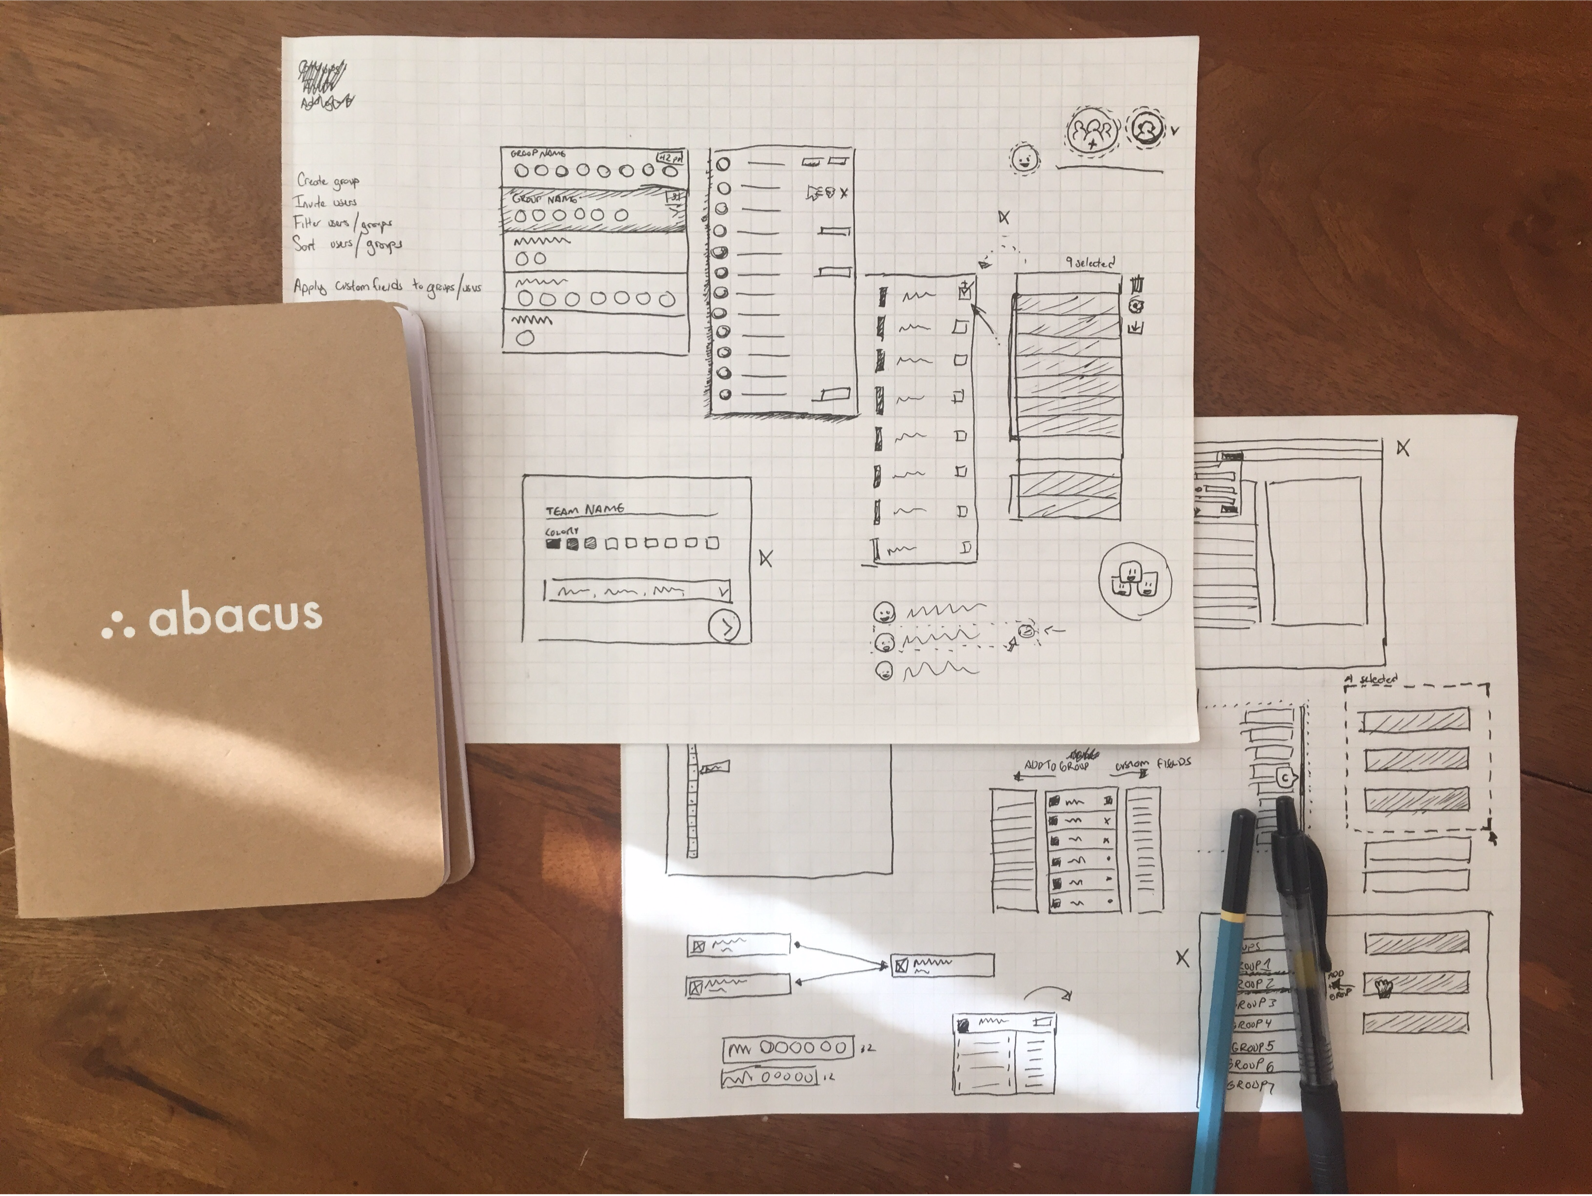 Create group
Invite users
Filter users/groups
Sort users/groups
Apply custom fields to groups/users
GROUP NAME
GROUP NAME
9 selected
TEAM NAME
COLOR?
abacus
selected
ADD TO GROUP
CUSTOM FIELDS
GROUP 1
GROUP 2
GROUP 3
GROUP 4
GROUP 5
GROUP 6
GROUP 7
ADD
GROUP
:12
:12